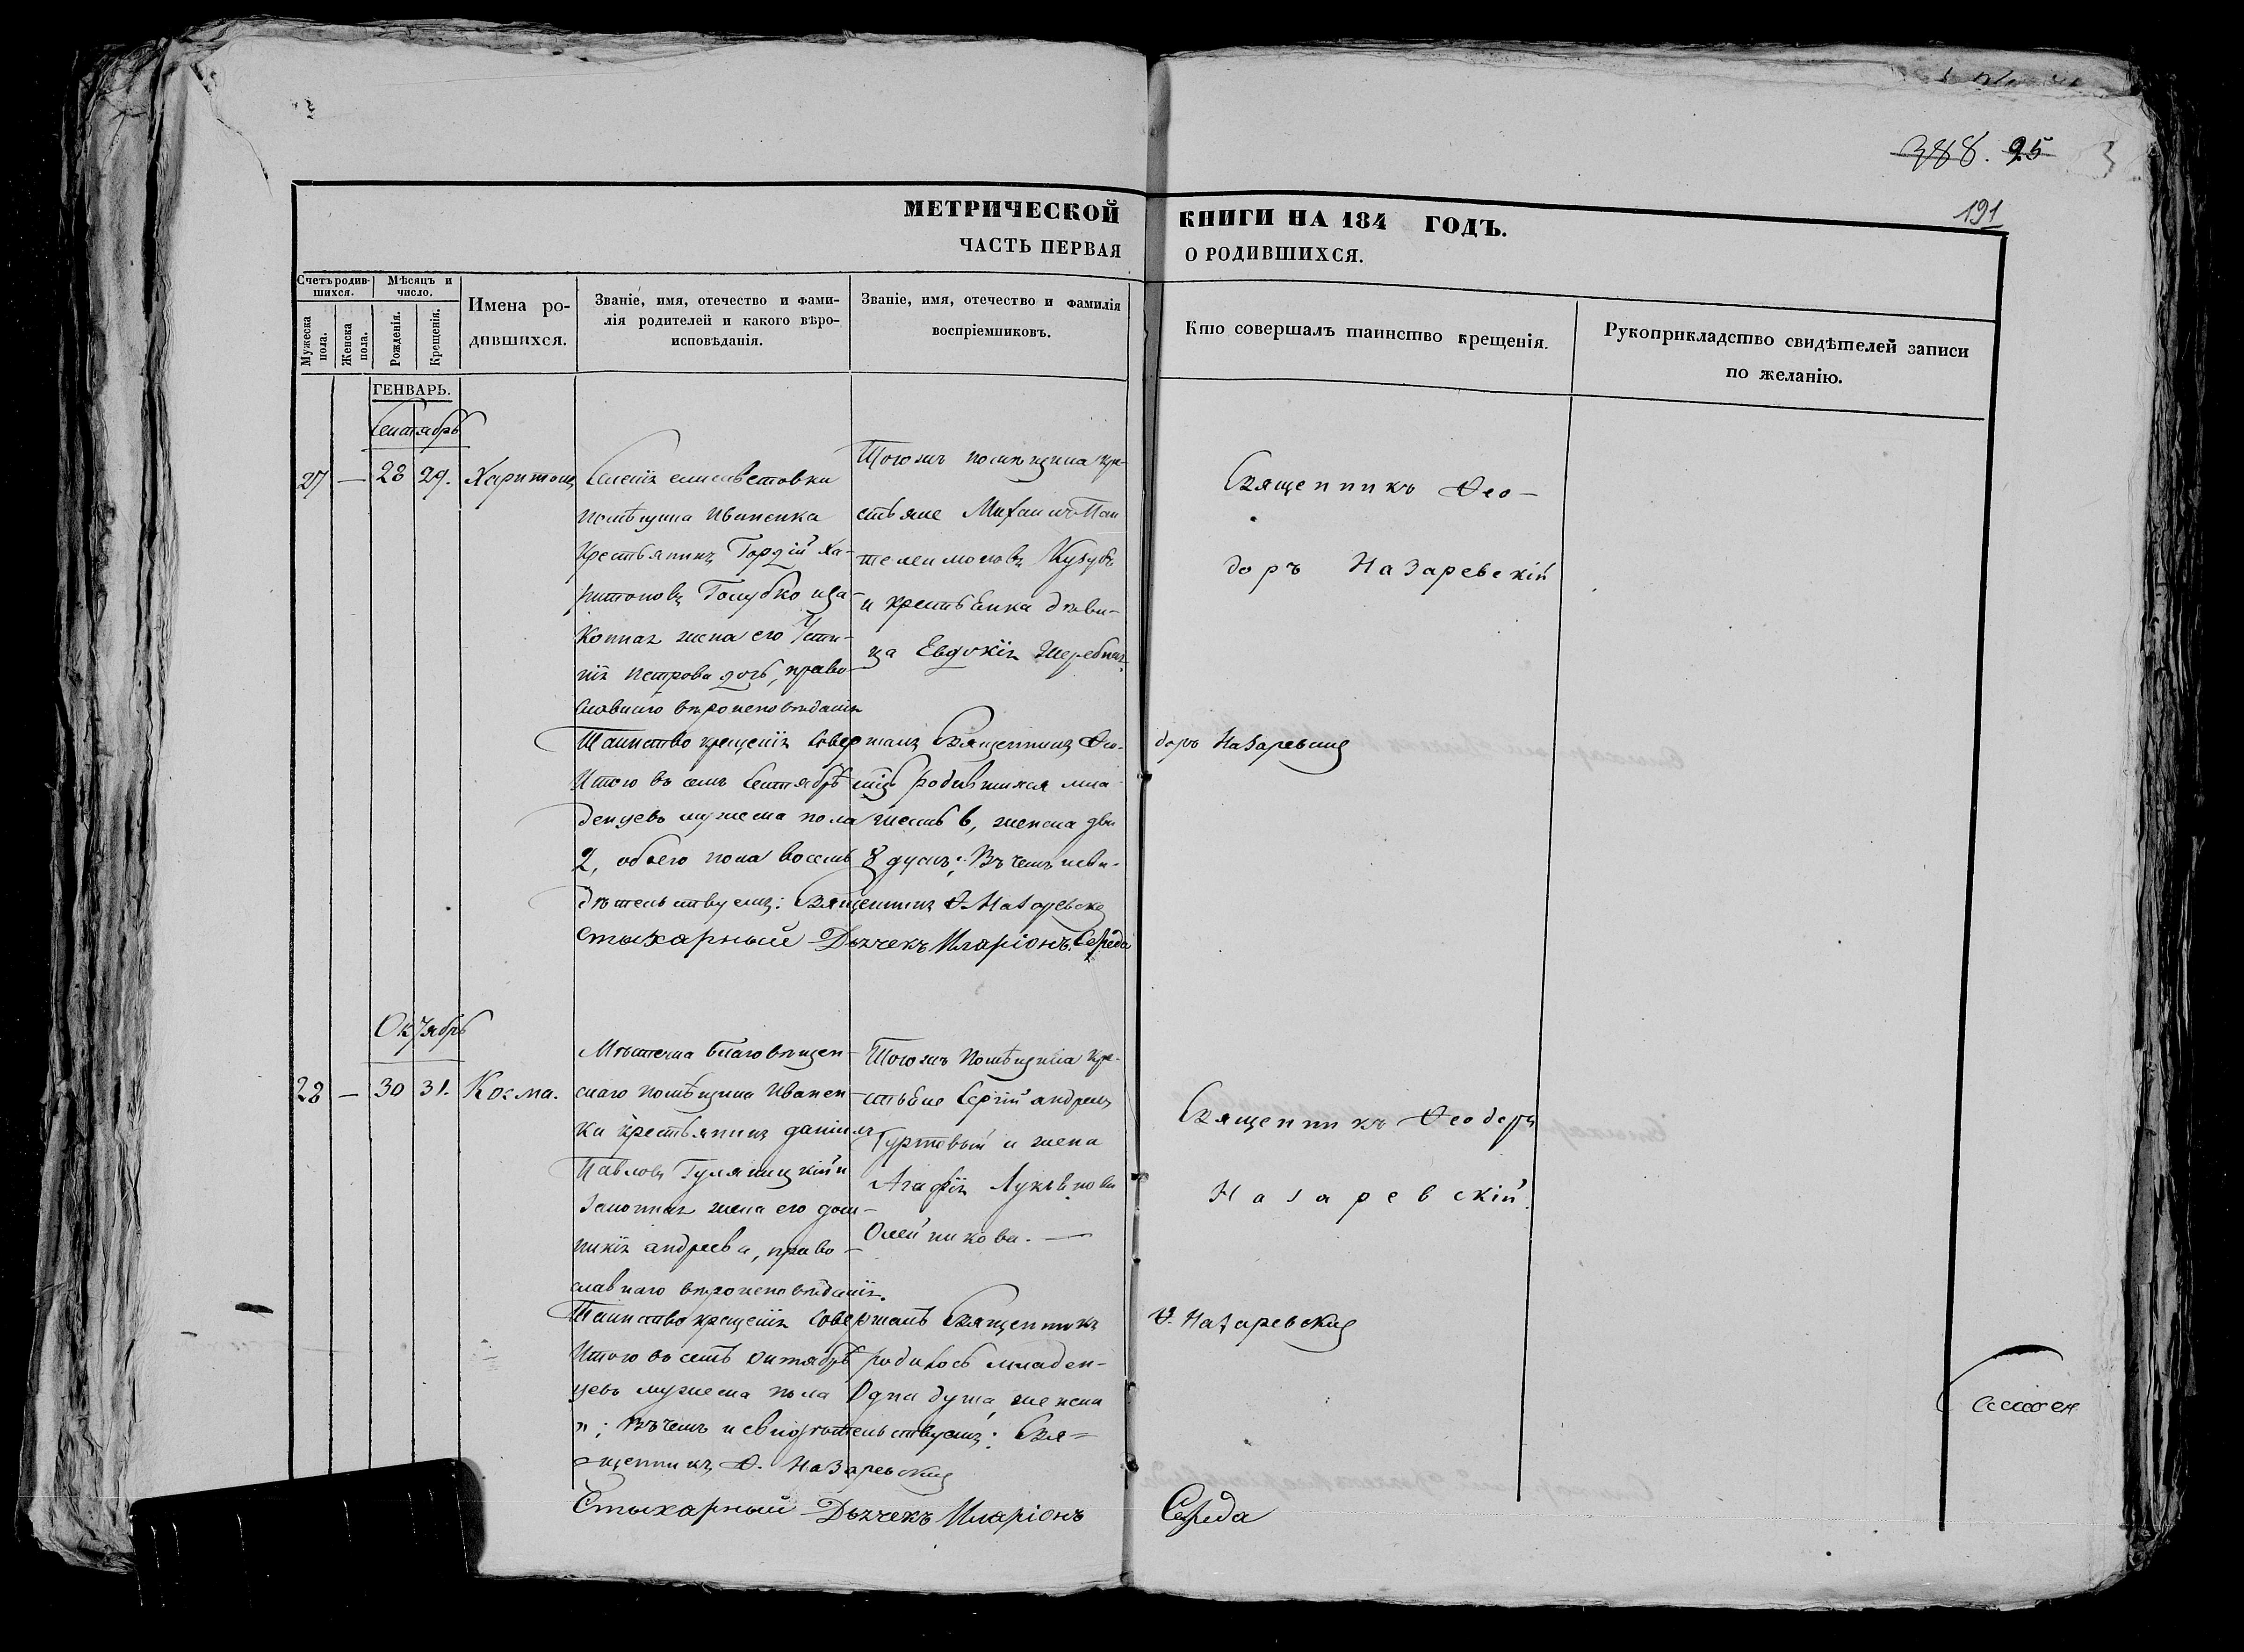 388. 95
191
МЕТРИЧЕСКОЙ КНИГИ НА 184 ГОДЪ.
ЧАСТЬ ПЕРВАЯ О РОДИВШИХСЯ.
Счетъ родив-
шихся.
Мѣсяцъ и
число.
Мужеска
пола.
Женска
пола.
Рожденія.
Крещенія.
Имена ро-
дившихся.
Званіе, имя, отечество и фами-
лія родителей и какого вѣро-
исповѣданія.
Званіе, имя, отечество и фамилія
воспріемниковъ.
Кто совершалъ таинство крещенія.
Рукоприкладство свидѣтелей записи
по желанію.
ГЕНВАРЬ.
Сентябрь
27 — 28 29. Харитонъ
елисаветовки
помѣщика Иваненка
Крестьянинъ Гордій Ха-
ритоновъ Голубко и за-
коннаѧ жена его Усти-
ніѧ Петрова дочь, право-
славнаго вѣроисповѣданіѧ
Тогожъ помѣщика кре-
стьяне Михаилъ Пан
телеимоновъ Кузубъ
и крестьѧнка дѣви-
ца Евдокіѧ
Священникъ Ѳео-
доръ Назаревскій
Таинство крещеніѧ совершалъ Священникъ Ѳео- доръ Назаревскій
Итого въ семъ Сентябрѣ м͠цѣ родившихся мла-
денцевъ мужеска пола шесть 6, женска двѣ
2, обоего пола восемь 8 душъ; Въ чемъ и сви-
дѣтельствуемъ: Священникъ Ѳ. Назаревскій
Стыхарный Дьячекъ Иларіонъ Середа
Октябрь
28 — 30 31. Косма.
Мѣстечка Благовѣщен-
скаго помѣщика Иванен-
ка крестьянинъ Даніилъ
Павловъ Гуляницкій и
законнаѧ жена его Дом-
никіѧ Андреева, право-
славнаго вѣроисповѣданіѧ.
Тогожъ Помѣщика кре-
стьѧне Сергій Андреевъ
Гуртовый и жена
Агафіѧ Лукьѧнова
Олейникова. —
Священникъ Ѳеодоръ
Назаревскій.
Таинство крещеніѧ совершалъ Священникъ Ѳ. Назаревскій
Итого въ семъ октябрѣ родилось младен-
цевъ мужеска пола Одна душа, женска
"; Въ чемъ и свидѣтельствуемъ: Свя=
щенникъ Ѳ. Назаревскій
Стыхарный Дьячекъ Иларіонъ Середа